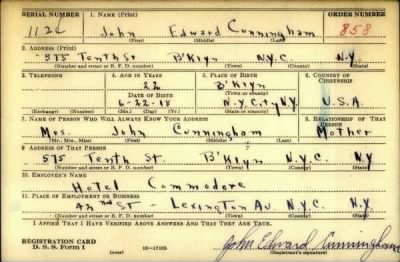 SERIAL NUMBER 1. NAME (Print) ORDER NUMBER
1126 John Edward Cunningham 858
(First) (Middle) (Last)
2. ADDRESS (Print)
575 Tenth St B'Klyn N.Y.C. N.Y.
(Number and street or R. F. D. number) (Town) (County) (State)
3. TELEPHONE 4. AGE IN YEARS 5. PLACE OF BIRTH 6. COUNTRY OF CITIZENSHIP
22 B'Klyn
DATE OF BIRTH (Town or county)
6-22-18 N.Y.City N.Y. U.S.A.
(Exchange) (Number) (Mo.) (Day) (Yr.) (State or country)
7. NAME OF PERSON WHO WILL ALWAYS KNOW YOUR ADDRESS 8. RELATIONSHIP OF THAT PERSON
Mrs. John Cunningham Mother
(Mr., Mrs., Miss) (First) (Middle) (Last)
9. ADDRESS OF THAT PERSON
575 Tenth St. B'Klyn N.Y.C. N.Y
(Number and street or R. F. D. number) (Town) (County) (State)
10. EMPLOYER'S NAME
Hotel Commodore
11. PLACE OF EMPLOYMENT OR BUSINESS
42nd St - Lexington Av. N.Y.C. N.Y
(Number and street or R. F. D. number) (Town) (County) (State)
I AFFIRM THAT I HAVE VERIFIED ABOVE ANSWERS AND THAT THEY ARE TRUE.
REGISTRATION CARD
D. S. S. Form 1 (over) John Edward Cunningham
(Registrant's signature)